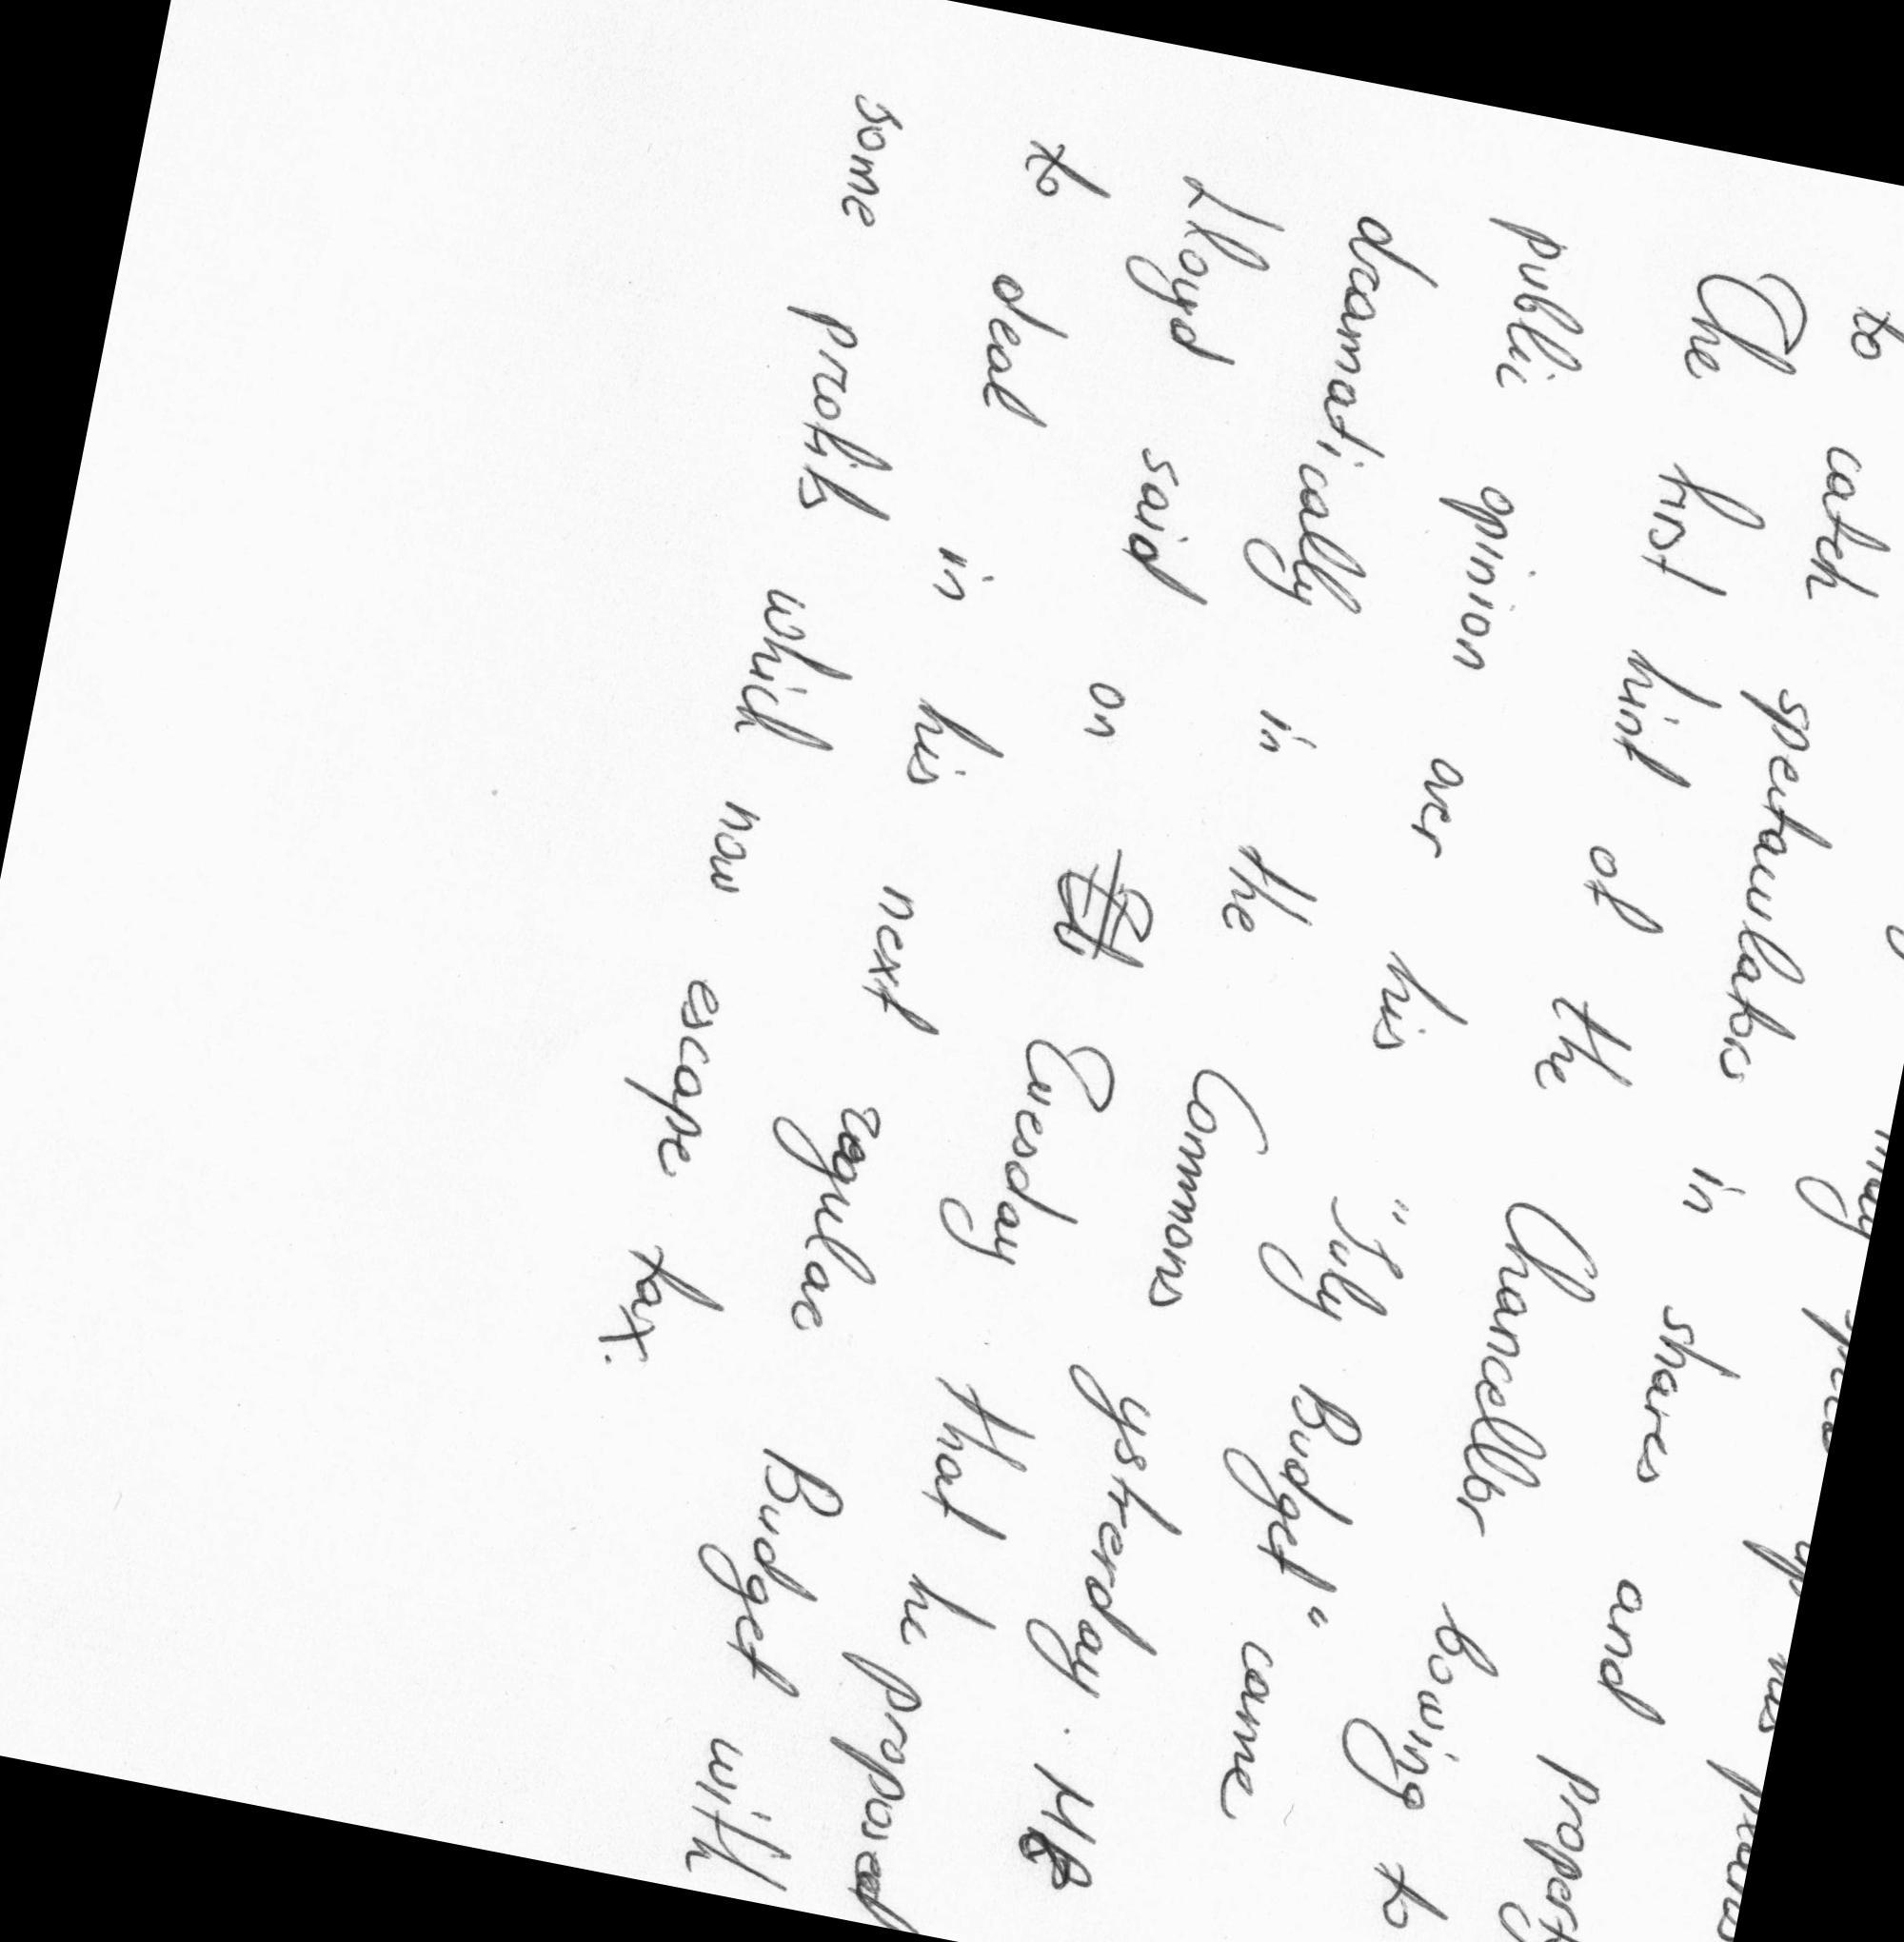 may up his plans
to catch spectaulators in shares and property
The first hint of the Chancellor bowing to
public opinion over his "July Budget" came
dramatically in the Commons ystrerday. Mr
Lloyd said on Tuesday that he proposed
to deal in his next regular Budget with
some profits which now escape tax.